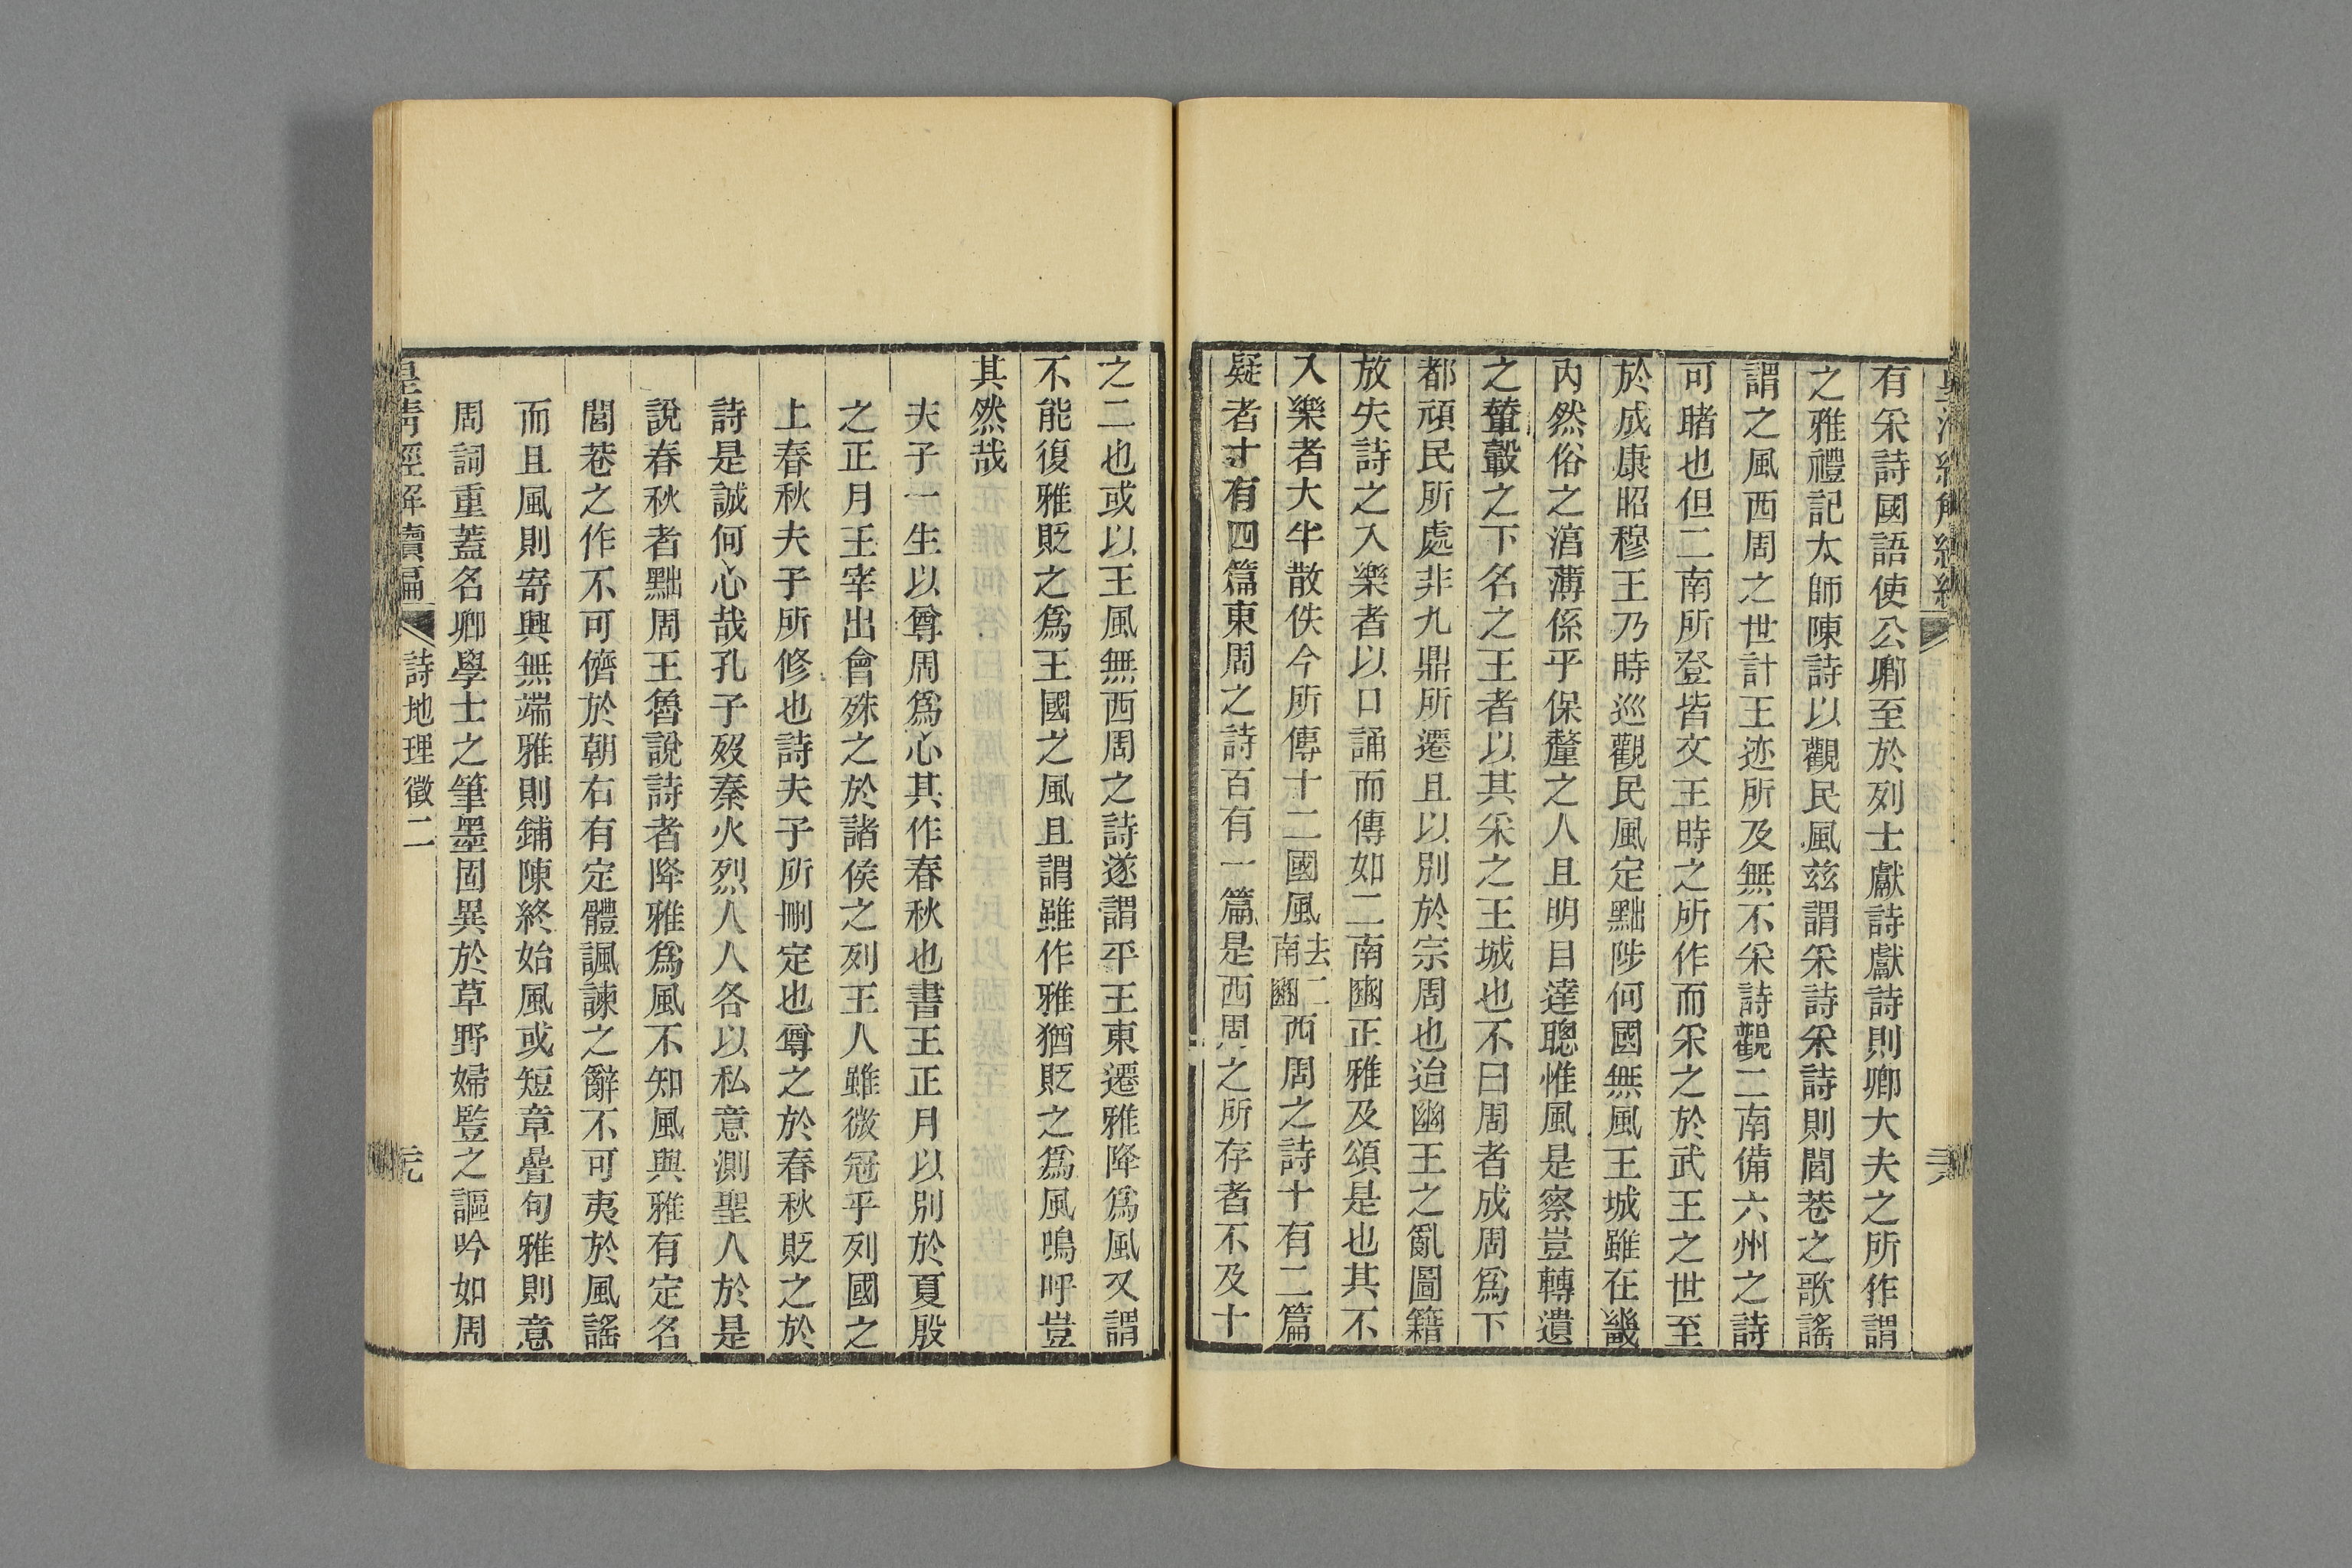 有采詩國語使公卿至於列士獻詩獻詩則卿大夫之所作謂
之雅禮記太師陳詩以觀民風玆謂采詩采詩則閭巷之歌謠
謂之風西周之世計王迹所及無不采詩觀二南備六州之詩
可睹也但二南所登皆文王時之所作而采之於武王之世至
於成康昭穆王乃時巡觀民風定黜陟何國無風王城雖在畿
內然俗之湻薄係乎保釐之人且明目達聰惟風是察豈轉遺
之輦轂之下名之王者以其采之王城也不曰周者成周爲下
都頑民所處非九鼎所遷且以別於宗周也迨幽王之亂圖籍
放失詩之入樂者以口誦而傳如二南豳正雅及頌是也其不
入樂者大半散佚今所傳十二國風去二南豳西周之詩十有二篇
疑者十有四篇東周之詩百有一篇是西周之所存者不及十
之二也或以王風無西周之詩遂謂平王東遷雅降爲風又謂
不能復雅貶之爲王國之風且謂雖作雅猶貶之爲風嗚呼豈
其然哉
夫子一生以尊周爲心其作春秋也書王正月以別於夏殷
之正月王宰出會殊之於諸侯之列王人雖微冠乎列國之
上春秋夫子所修也詩夫子所刪定也尊之於春秋貶之於
詩是誠何心哉孔子歿秦火烈人人各以私意測聖人於是
說春秋者黜周王魯說詩者降雅爲風不知風與雅有定名
閭巷之作不可儕於朝右有定體諷諫之辭不可夷於風謠
而且風則寄興無端雅則鋪陳終始風或短章疊句雅則意
周詞重蓋名卿學士之筆墨固異於草野婦豎之謳吟如周
皇清經解續編
詩地理徵二